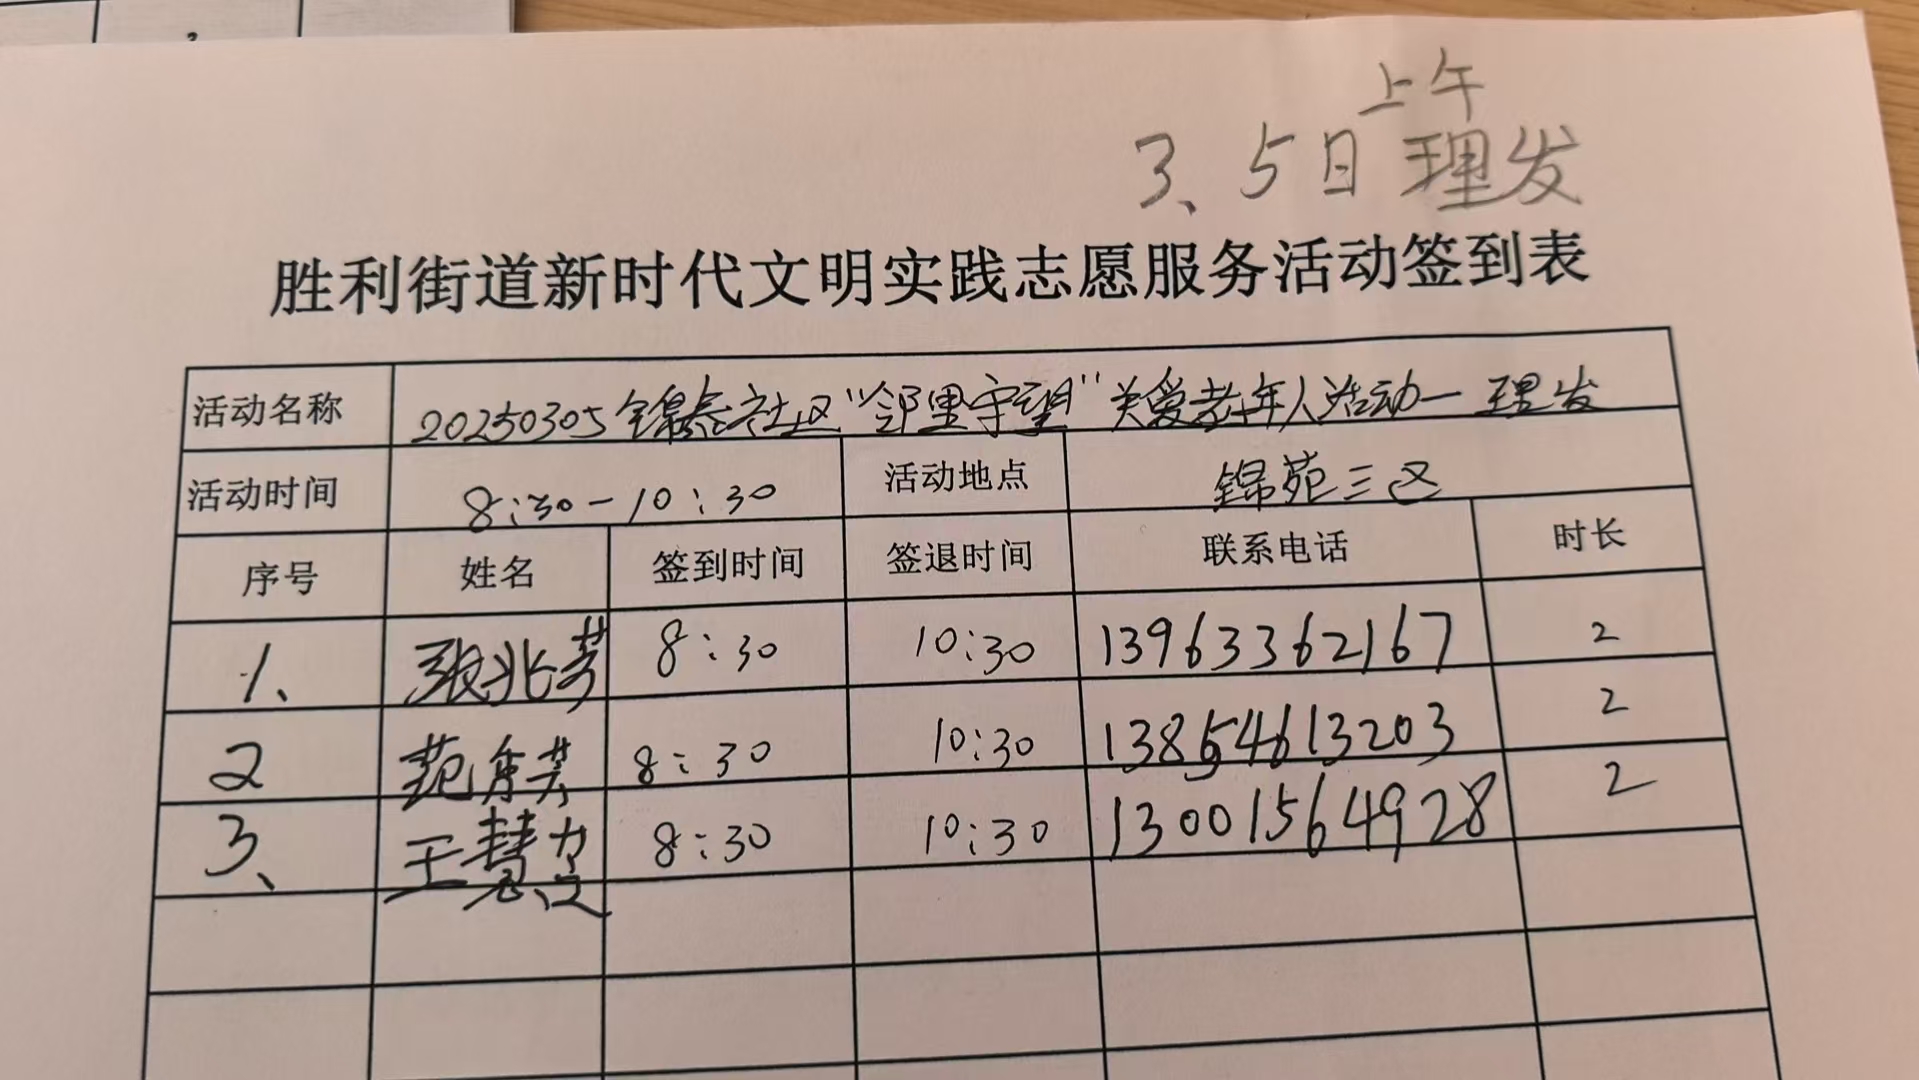 上午
3、5日理发
胜利街道新时代文明实践志愿服务活动签到表
活动名称 20250305锦泰社区“邻里守望”关爱老年人活动一理发
活动时间 8:30-10:30 活动地点 锦苑三区
序号 姓名 签到时间 签退时间 联系电话 时长
1、 张兆芳 8:30 10:30 13963362167 2
2 范 8:30 10:30 13854613203 2
3、 王慧 8:30 10:30 13001564928 2